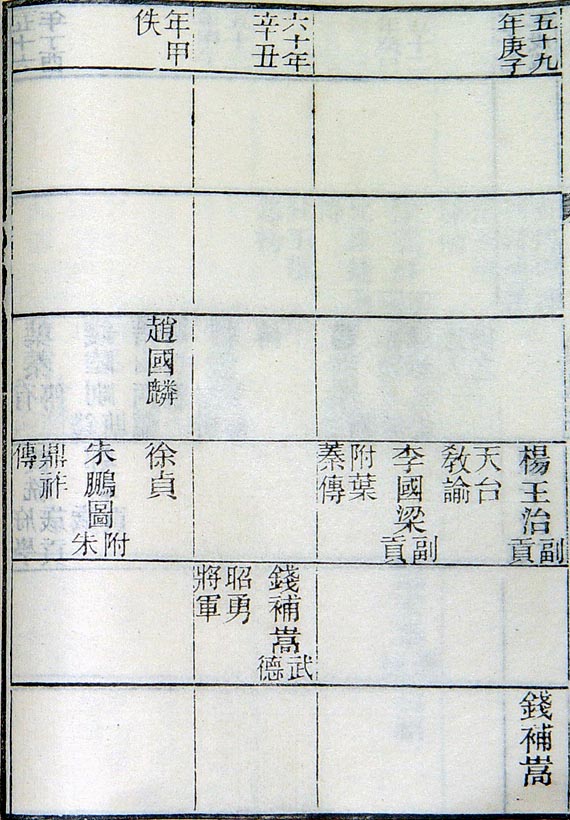 五十九
年庚子
楊王治副貢
天台
教諭
李國梁副貢
附葉
蓁傳
錢補嵩
六十年
辛丑
錢補嵩武德
昭勇
將軍
年甲
佚
趙國麟
徐貞
朱鵬圖附朱
鼎祥
傳